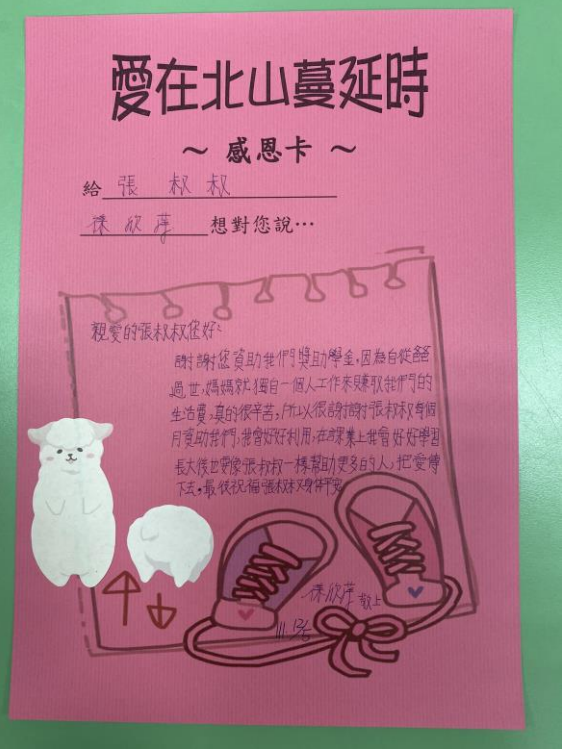 愛在北山蔓延時
～ 感恩卡 ～
給 張 叔叔
欣萍 想對您說…
親愛的張叔叔您好：
謝謝您資助我們獎助學金，因為自從爸爸
過世，媽媽就獨自一個人工作來賺取我們的
生活費，真的很辛苦，所以很謝謝張叔叔每個
月資助我們，我會好好利用，在課業上我會好好學習
長大後也要像張叔叔一樣幫助更多的人，把愛傳
下去。最後祝福張叔叔身體平安
欣萍 敬上
111